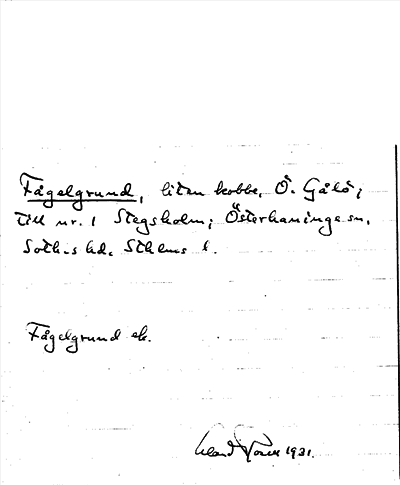 Fågelgrund, liten kobbe, Ö. Gålö,
till nr. 1 Stegsholm; Österhaninge sn.
Soth-s hd. Sthlms l.
Fågelgrund ek.
1931.